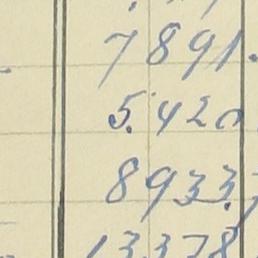 7891.
5.420
8933.
13378